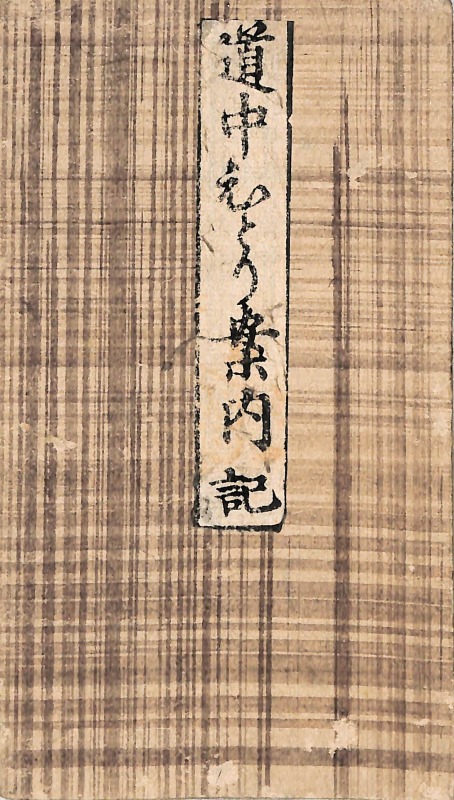 道中ひとり案内記